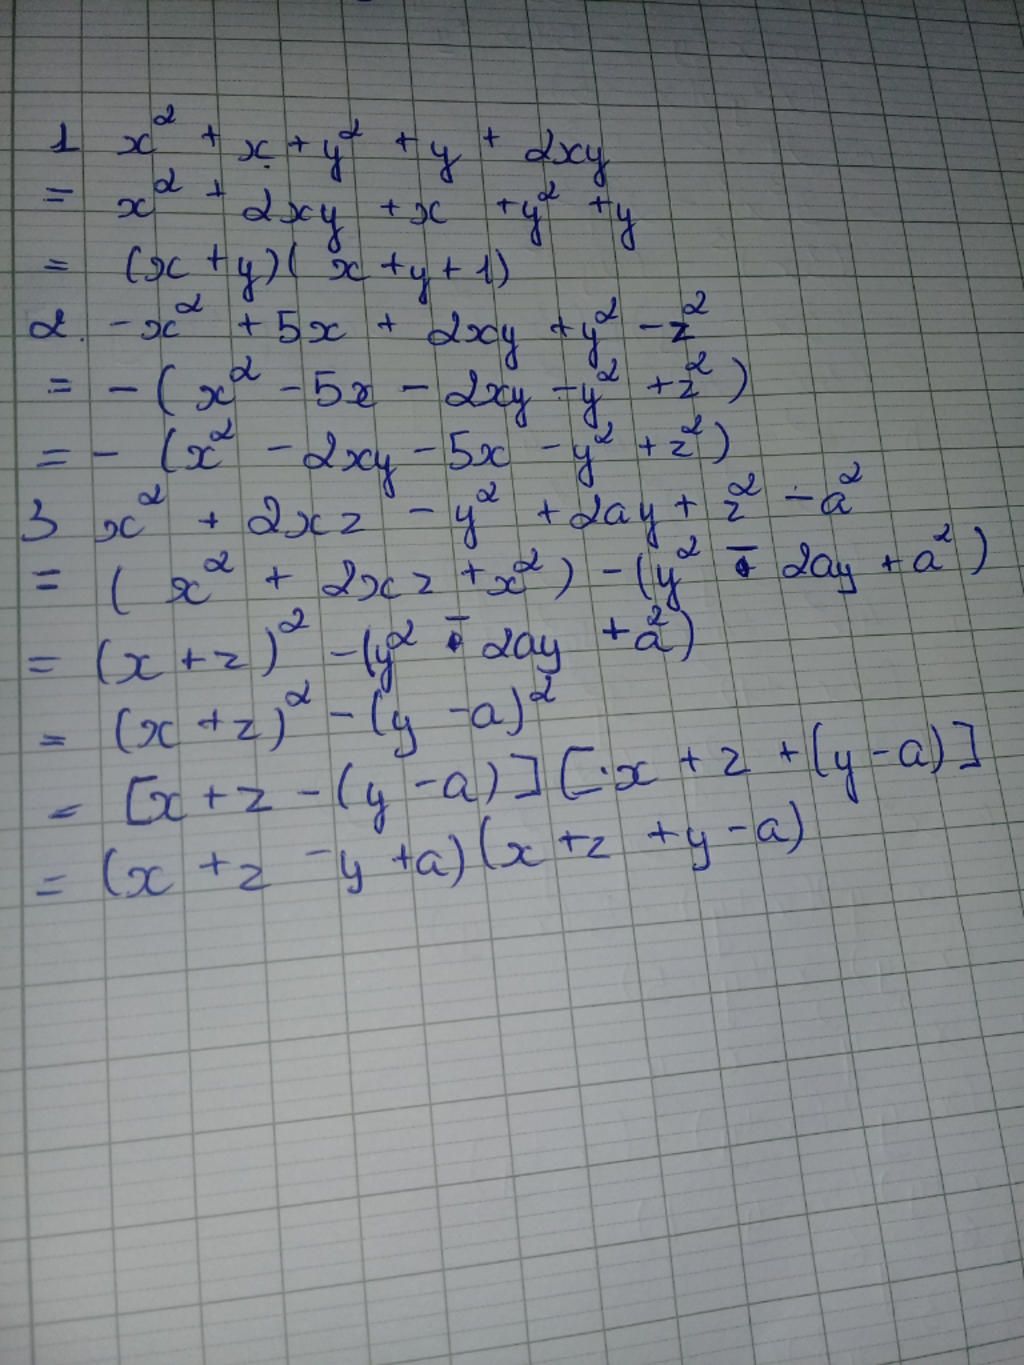 1 x² + x + y² + y + 2xy
= x² + 2xy + x + y² + y
= (x + y)( x + y + 1)
2. -x² + 5x + 2xy + y² - z²
= - ( x² - 5x - 2xy - y² + z² )
= - (x² - 2xy - 5x - y² + z²)
3 x² + 2xz - y² + 2ay + z² - a²
= ( x² + 2xz + x²) - (y² - 2ay + a² )
= (x + z)² - (y² - 2ay + a²)
= (x + z)² - (y - a)²
= [x + z - (y - a)] [x + z + (y - a)]
= (x + z - y + a) (x + z + y - a)